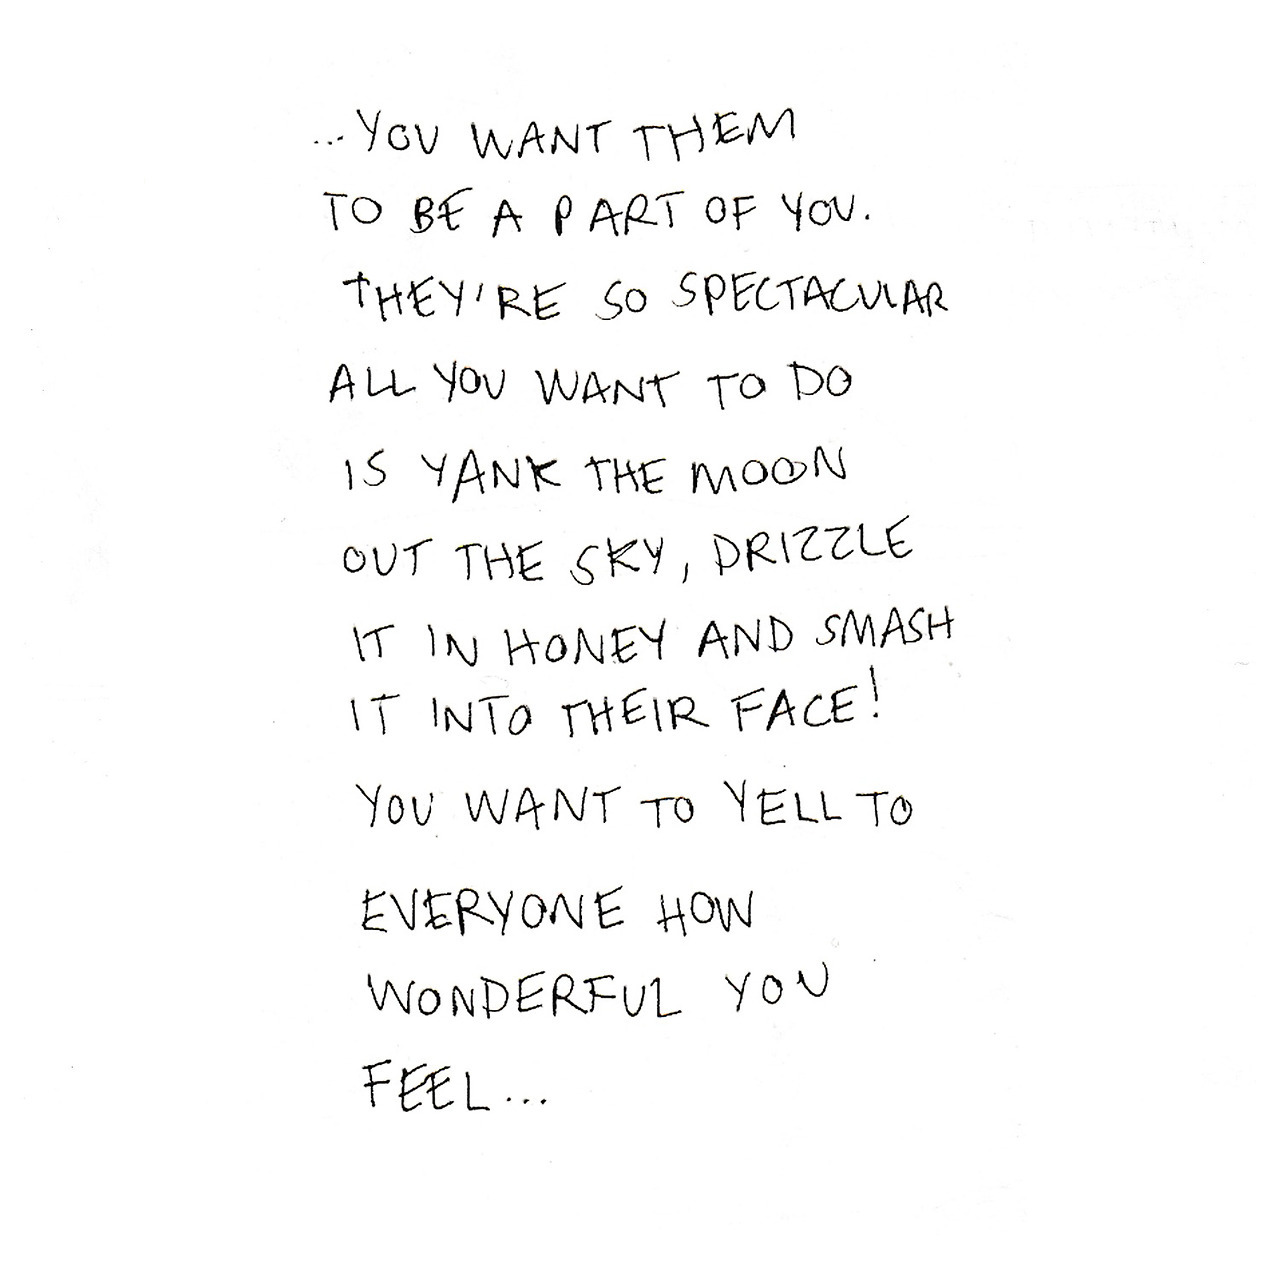 ...YOU WANT THEM
TO BE A PART OF YOU.
THEY'RE SO SPECTACULAR
ALL YOU WANT TO DO
IS YANK THE MOON
OUT THE SKY, DRIZZLE
IT IN HONEY AND SMASH
IT INTO THEIR FACE!
YOU WANT TO YELL TO
EVERYONE HOW
WONDERFUL YOU
FEEL...